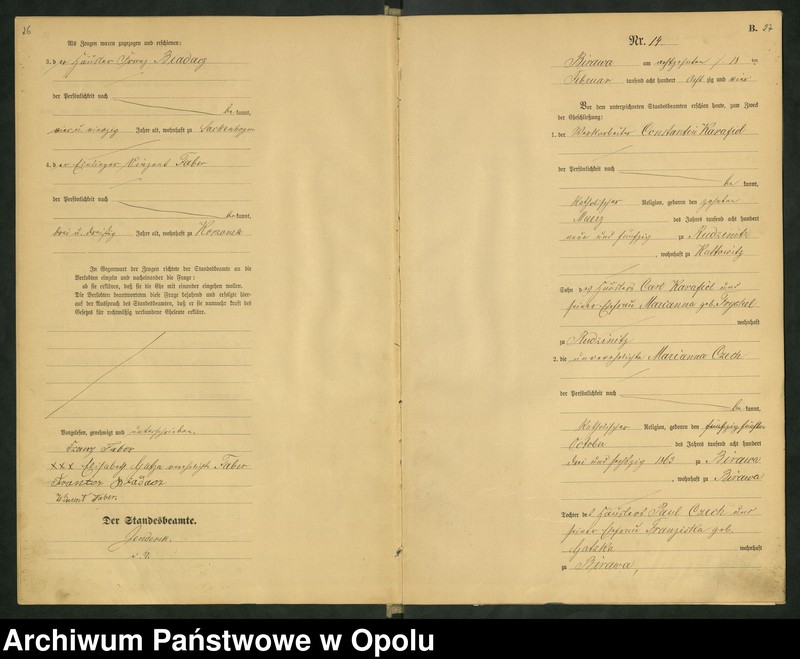 26
Als Zeugen waren zugezogen und erschienen:
3. der Häusler Franz Biadacz
der Persönlichkeit nach
be kannt,
vier u. vierzig Jahre alt, wohnhaft zu
4. der Einlieger Vinzent Faber
der Persönlichkeit nach
be kannt,
drei u. dreißig Jahre alt, wohnhaft zu
In Gegenwart der Zeugen richtete der Standesbeamte an die
Verlobten einzeln und nacheinander die Frage:
ob sie erklären, daß sie die Ehe mit einander eingehen wollen.
Die Verlobten beantworteten diese Frage bejahend und erfolgte hier-
auf der Ausspruch des Standesbeamten, daß er sie nunmehr kraft des
Gesetzes für rechtmäßig verbundene Eheleute erkläre.
Vorgelesen, genehmigt und unterschrieben.
Franz Faber
XXX Elisabeth verehelichte Faber
Vincent Faber.
Der Standesbeamte.
B. 27
Nr. 14
Birawa am achtzehnten / 18 ten
Februar tausend acht hundert acht zig und vier
Vor dem unterzeichneten Standesbeamten erschien heute, zum Zweck
der Eheschließung:
1. der Constantin Karafiol
der Persönlichkeit nach
be kannt,
katholischer Religion, geboren den zehnten
Maerz des Jahres tausend acht hundert
neun und fünfzig zu Rudzinitz
, wohnhaft zu Kattowitz
Sohn des Häuslers Carl Karafiol und
seiner Ehefrau Marianna geb.
wohnhaft
zu Rudzinitz
2. die unverehelichte Marianna Czech
der Persönlichkeit nach
be kannt,
katholischer Religion, geboren den
October des Jahres tausend acht hundert
drei und sechszig 1863 zu Birawa
, wohnhaft zu Birawa
Tochter des Häuslers Paul Czech und
seiner Ehefrau Franziska geb.
Gatzka wohnhaft
zu Birawa,
Archiwum Państwowe w Opolu